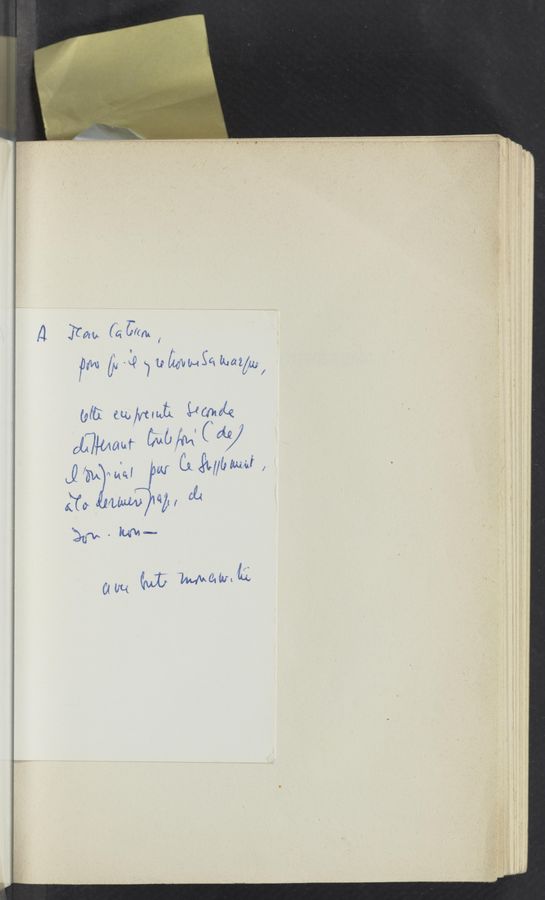 A Jean Catesson,
pour qu'il y retrouve sa marque,
cette empreinte seconde
différant toutefois (de)
l'original par le supplément,
à la dernière page, de
son . nom —
avec toute mon amitié